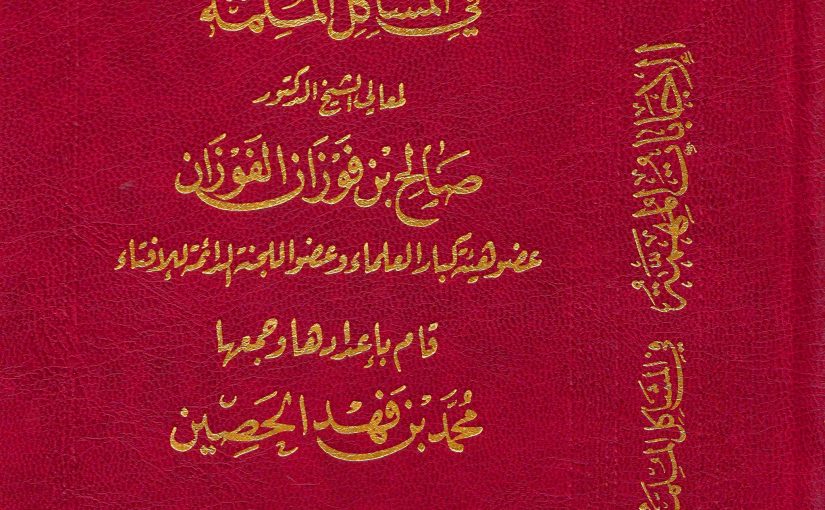 في المشاكل الملمة
لمعالي الشيخ الدكتور
صَالِح بْن فَوْزَان الفَوْزَان
عضو هيئة كبار العلماء وعضو اللجنة الدائمة للإفتاء
قام بإعدادها وجمعها
مُحمَّد بْن فَهْد الحُصَيِّن
الإجابات المهمة في المشاكل الملمة